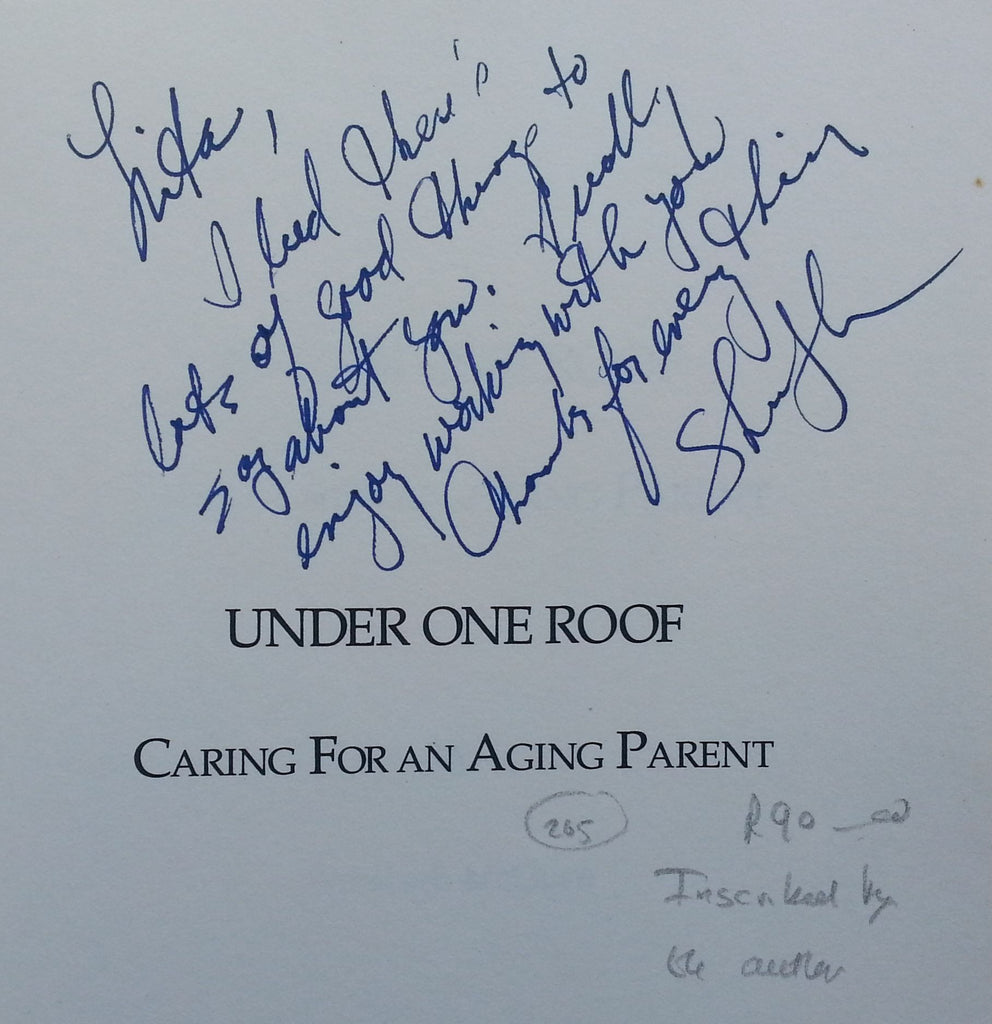 Lita,
I feel there's
lots of good things to
say about you. I really
enjoy working with you
Thanks for everything
UNDER ONE ROOF
CARING FOR AN AGING PARENT
265
R90
Inscribed by
the author